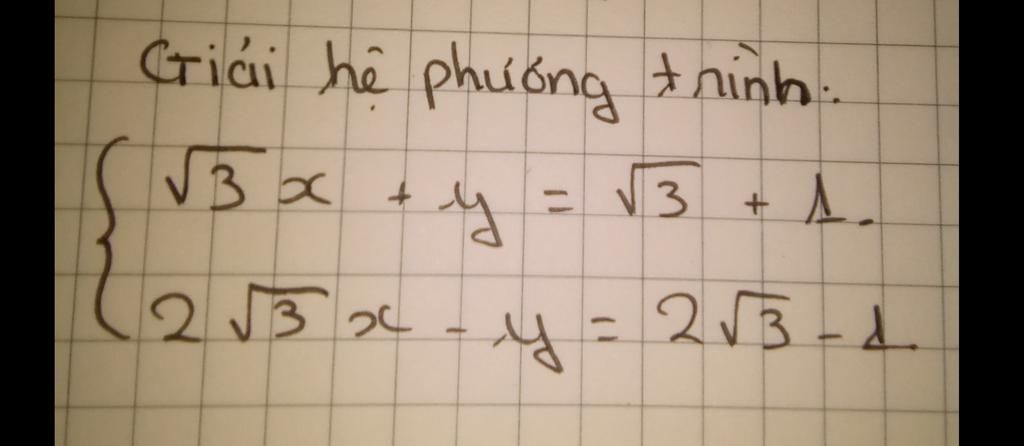 Giải hệ phương trình:
√3 x + y = √3 + 1.
2√3 x - y = 2√3 - 1